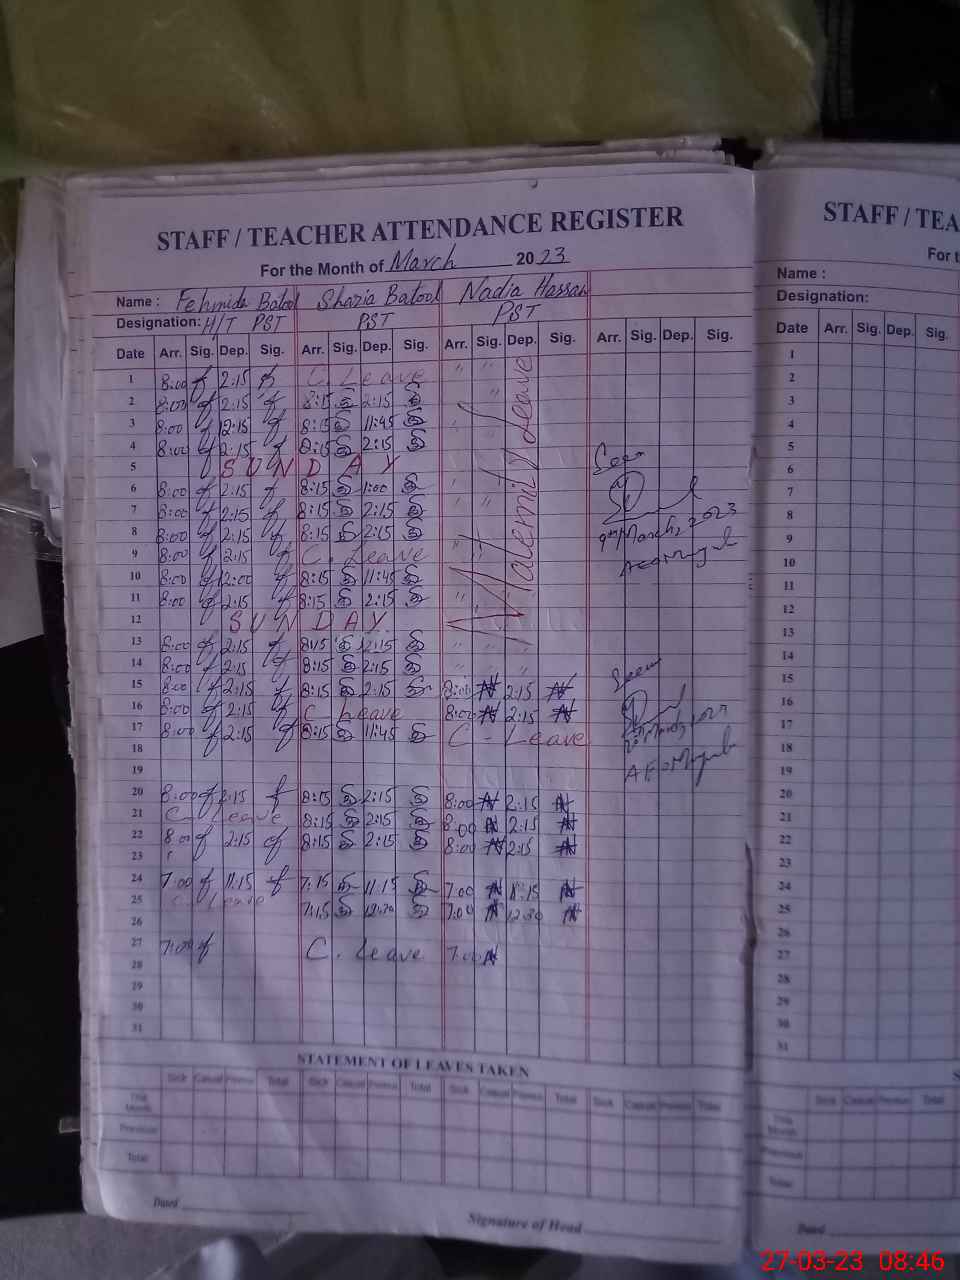 STAFF / TEACHER ATTENDANCE REGISTER
For the Month of March 2023
Name : Fehmida Batool Shazia Batool Nadia Hassan
Designation: H/T PST PST PST
Date Arr. Sig. Dep. Sig. Arr. Sig. Dep. Sig. Arr. Sig. Dep. Sig. Arr. Sig. Dep. Sig.
1 8:00 2:15 C. Leave " "
2 8:00 2:15 8:15 2:15 "
3 8:00 12:15 8:15 11:45 "
4 8:00 2:15 8:15 2:15 "
5 SUNDAY
6 8:00 2:15 8:15 1:00 "
7 8:00 2:15 8:15 2:15 " "
8 8:00 2:15 8:15 2:15
9 8:00 2:15 C. Leave "
10 8:00 12:00 8:15 11:45
11 8:00 2:15 8:15 2:15 "
12 SUNDAY
13 8:00 2:15 8:15 12:15 " " "
14 8:00 2:15 8:15 2:15 " " "
Maternity Leave
15 8:00 2:15 8:15 2:15 8:00 2:15
16 8:00 2:15 C. Leave 8:00 2:15
17 8:00 2:15 8:15 11:45 C - Leave
18
19
20 8:00 2:15 8:15 2:15 8:00 2:15
21 C. Leave 8:15 2:15 8:00 2:15
22 8:00 2:15 8:15 2:15 8:00 2:15
23
24 7:00 11:15 7:15 11:15 7:00 11:15
25 C. Leave 7:15 12:30 7:00 12:30
26
27 7:00 C. Leave 7:00
28
29
30
31
Seen
9th March, 2023
Seen
March, 2023
AEO
STATEMENT OF LEAVES TAKEN
Sick Casual Total Sick Casual Total Sick Casual Total Sick Casual Total
This Month
Previous
Total
Dated
Signature of Head
STAFF / TEA
For t
Name :
Designation:
Date Arr. Sig. Dep. Sig.
1
2
3
4
5
6
7
8
9
10
11
12
13
14
15
16
17
18
19
20
21
22
23
24
25
26
27
28
29
30
31
S
Sick Casual Total
This Month
Total
Dated
27-03-23 08:46